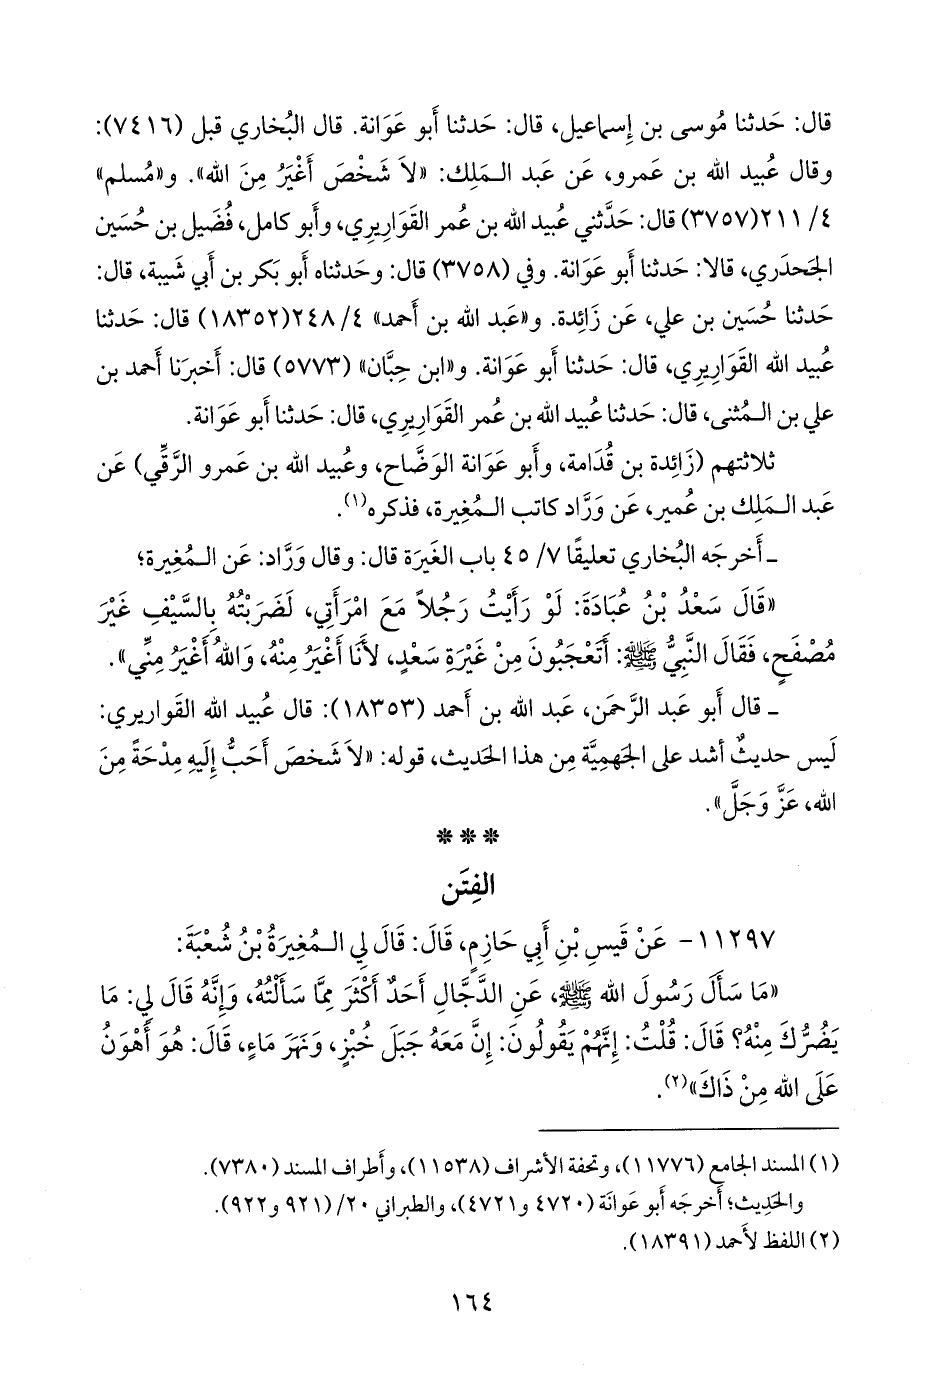 قال: حَدثنا مُوسى بن إِسماعيل، قال: حَدثنا أَبو عَوَانة. قال البُخاري قبل (٧٤١٦):
وقال عُبيد الله بن عَمرو، عَن عَبد الـمَلِك: «لاَ شَخْصَ أَغْيَرُ مِنَ الله». و«مُسلم»
٤/ ٢١١(٣٧٥٧) قال: حَدَّثني عُبيد الله بن عُمر القَوَارِيري، وأَبو كامل، فُضَيل بن حُسَين
الجَحدَري، قالا: حَدثنا أَبو عَوَانة. وفي (٣٧٥٨) قال: وحَدثناه أَبو بَكر بن أَبي شَيبة، قال:
حَدثنا حُسَين بن علي، عَن زَائِدة. و«عَبد الله بن أَحمد» ٤/ ٢٤٨(١٨٣٥٢) قال: حَدثنا
عُبيد الله القَوَارِيري، قال: حَدثنا أَبو عَوَانة. و«ابن حِبَّان» (٥٧٧٣) قال: أَخبرَنا أَحمد بن
علي بن الـمُثنى، قال: حَدثنا عُبيد الله بن عُمر القَوَارِيري، قال: حَدثنا أَبو عَوَانة.
ثلاثتهم (زَائِدة بن قُدَامة، وأَبو عَوَانة الوَضَّاح، وعُبيد الله بن عَمرو الرَّقِّي) عَن
عَبد الـمَلِك بن عُمير، عَن وَرَّاد كاتب الـمُغِيرة، فذكره(١).
ـ أَخرجَه البُخاري تعليقًا ٧/ ٤٥ باب الغَيرَة قال: وقال وَرَّاد: عَن الـمُغِيرة؛
«قَالَ سَعْدُ بْنُ عُبَادَةَ: لَوْ رَأَيْتُ رَجُلاً مَعَ امْرَأَتِي، لَضَرَبْتُهُ بِالسَّيْفِ غَيْرَ
مُصْفَحٍ، فَقَالَ النَّبِيُّ ﷺ: أَتَعْجَبُونَ مِنْ غَيْرَةِ سَعْدٍ، لأَنَا أَغْيَرُ مِنْهُ، وَاللهُ أَغْيَرُ مِنِّي».
ـ قال أَبو عَبد الرَّحمَن، عَبد الله بن أَحمد (١٨٣٥٣): قال عُبيد الله القَواريري:
لَيس حديثٌ أَشد على الجَهمِيَّة مِن هذا الحَديث، قوله: «لاَ شَخصَ أَحَبُّ إِلَيهِ مِدْحَةً مِنَ
الله، عَزَّ وَجَلَّ».
***
الفِتَن
١١٢٩٧- عَنْ قَيسِ بْنِ أَبِي حَازِمٍ، قَالَ: قَالَ لِي الـمُغِيرَةُ بْنُ شُعْبَةَ:
«مَا سَأَلَ رَسُولَ الله ﷺ، عَنِ الدَّجَّالِ أَحَدٌ أَكْثَرَ مِمَّا سَأَلْتُهُ، وَإِنَّهُ قَالَ لِي: مَا
يَضُرُّكَ مِنْهُ؟ قَالَ: قُلْتُ: إِنَّهُمْ يَقُولُونَ: إِنَّ مَعَهُ جَبَلَ خُبْزٍ، وَنَهَرَ مَاءٍ، قَالَ: هُوَ أَهْوَنُ
عَلَى الله مِنْ ذَاكَ»(٢).
(١) المسند الجامع (١١٧٧٦)، وتحفة الأشراف (١١٥٣٨)، وأَطراف المسند (٧٣٨٠).
والحَدِيث؛ أَخرجَه أَبو عَوانَة (٤٧٢٠ و٤٧٢١)، والطبراني ٢٠/ (٩٢١ و٩٢٢).
(٢) اللفظ لأَحمد (١٨٣٩١).
١٦٤